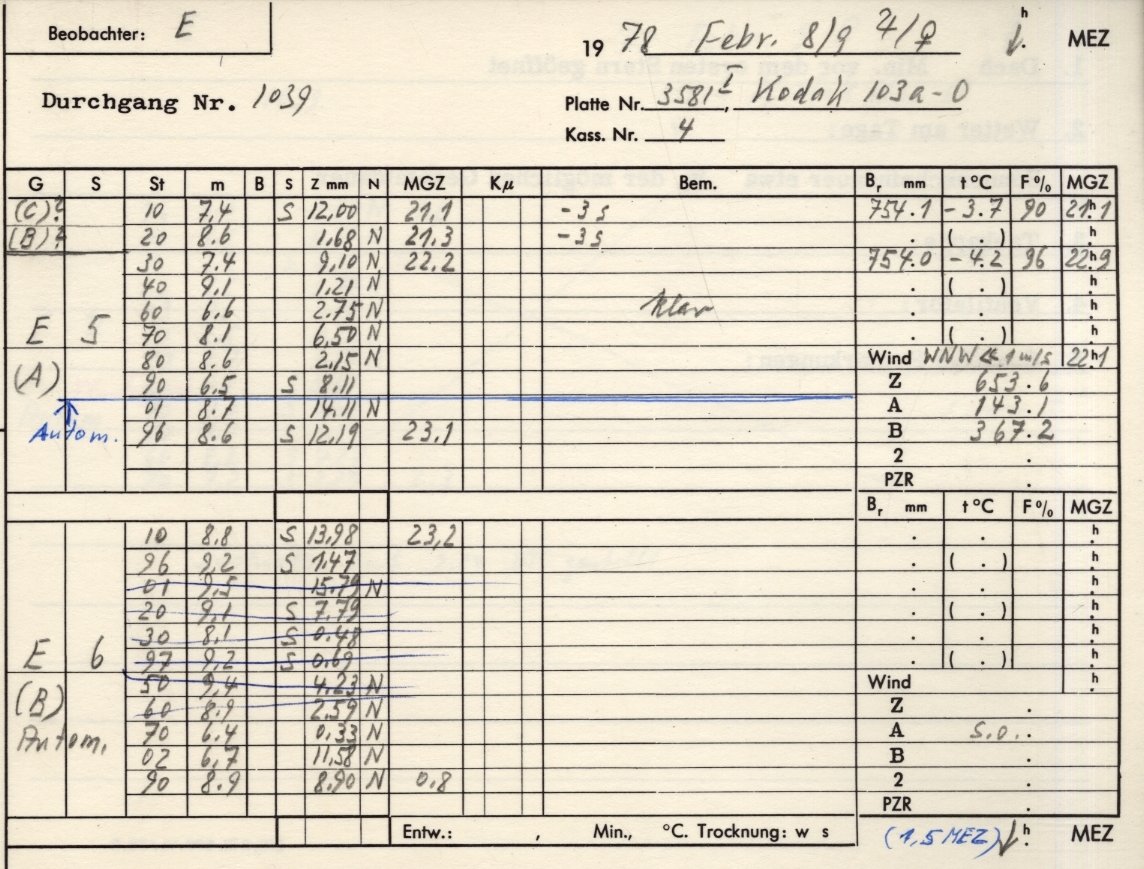 Beobachter: E
19 78 Febr. 8/9 ♃/♀ h MEZ
Durchgang Nr. 1039
Platte Nr. 3581 I, Kodak 103a-O
Kass. Nr. 4
G S St m B S Z mm N MGZ Kμ Bem. Br mm t°C F% MGZ
(C)? 10 7,4 S 12,00 21,1 -3s 754.1 -3.7 90 21h1
(B)? 20 8.6 1,68 N 21.3 -3s . ( . ) h
30 7.4 9,10 N 22.2 754.0 -4.2 96 22h9
40 9,1 1,21 N . ( . ) h
60 6,6 2.75 N klar . . h
E 5 70 8.1 6,50 N . ( . ) h
80 8.6 2,15 N Wind WNW ≪ 1 m/s 22h1
(A) 90 6,5 S 8.11 Z 653.6
01 8.7 14,11 N A 143.1
Autom. 96 8.6 S 12,19 23,1 B 367.2
2 .
PZR .
Br mm t°C F% MGZ
10 8.8 S 13,98 23,2 . . h
96 9,2 S 1,47 . ( . ) h
01 9,5 15.79 N . . h
20 9,1 S 7.79 . ( . ) h
30 8.1 S 0.48 . . h
E 6 97 9,2 S 0,69 . ( . ) h
50 9,4 4.23 N Wind h
(B) 60 8.9 2.59 N Z .
Autom. 70 6.4 0,33 N A s.o..
02 6,7 11,58 N B .
90 8.9 8,90 N 0,8 2 .
PZR .
Entw.: , Min., °C. Trocknung: w s (1,5 MEZ) h MEZ